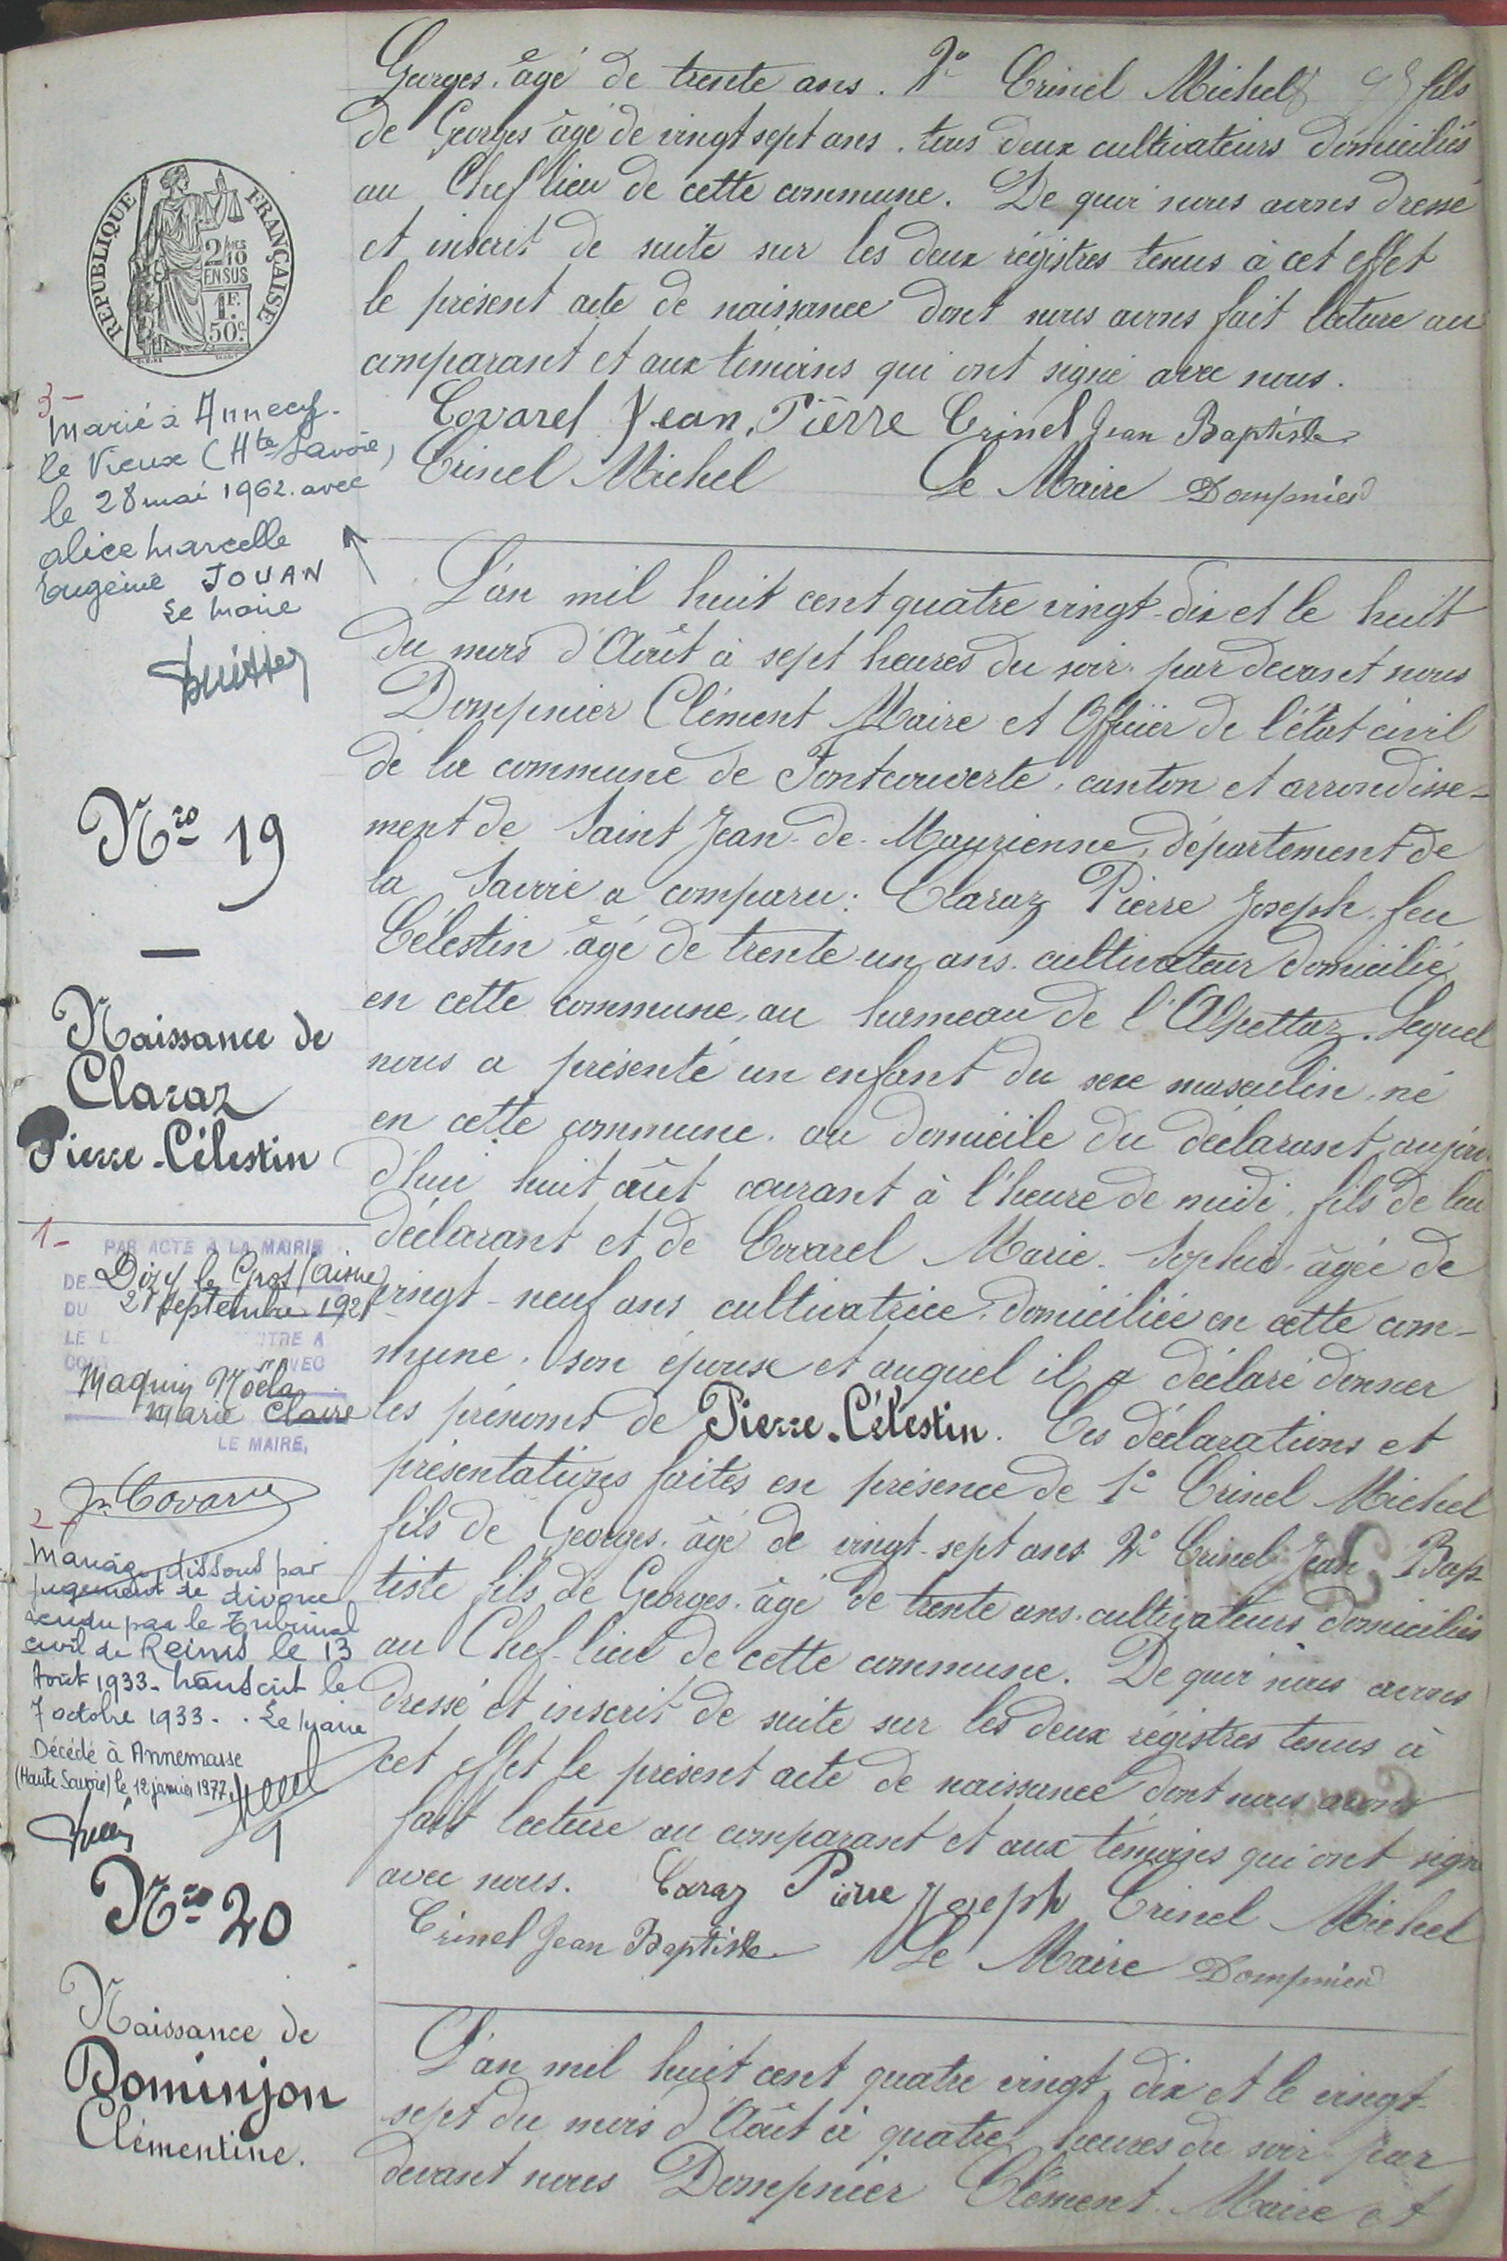 Georges, âgé de trente ans. 2° Crinel Michel fils
de Georges âgé de vingt sept ans, tous deux cultivateurs domiciliés
au Chef lieu de cette commune. De quoi nous avons dressé
et inscrit de suite sur les deux régistres tenus à cet effet
le présent acte de naissance dont nous avons fait lecture au
comparant et aux témoins qui ont signé avec nous.
Covarel Jean, Pierre Crinel Jean Baptiste
Crinel Michel Le Maire Dompnier
REPUBLIQUE FRANÇAISE
2/10
EN SUS
1F.
50c.
3-
Marié à Annecy-
le Vieux (Hte Savoie)
le 28 mai 1962 avec
Alice Marcelle
Eugénie JOUAN
Le Maire
Nro 19
Naissance de
Claraz
Pierre-Célestin
L'an mil huit cent quatre vingt-dix et le huit
du mois d'Août à sept heures du soir, par devant nous
Dompnier Clément Maire et Officier de l'état civil
de la commune de Fontcouverte, canton et arrondisse-
ment de Saint Jean-de-Maurienne, département de
la Savoie a comparu: Claraz Pierre Joseph, feu
Célestin âgé de trente-un ans, cultivateur domicilié
en cette commune, au hameau de l'Alpettaz. Lequel
nous a présenté un enfant du sexe masculin, né
en cette commune, au domicile du déclarant, aujour
d'hui huit août courant à l'heure de midi, fils de lui
déclarant et de Covarel Marie-Sophie, âgée de
vingt-neuf ans cultivatrice, domiciliée en cette com-
mune, son épouse et auquel il a déclaré donner
les prénoms de Pierre-Célestin. Ces déclarations et
présentations faites en présence de 1° Crinel Michel
fils de Georges, âgé de vingt-sept ans 2° Crinel Jean Bap-
tiste fils de Georges, âgé de trente ans, cultivateurs domiciliés
au Chef-lieu de cette commune. De quoi nous avons
dressé et inscrit de suite sur les deux régistres tenus à
cet effet le présent acte de naissance dont nous avons
fait lecture au comparant et aux témoins qui ont signé
avec nous. Caraz Pierre Joseph Crinel Michel
Crinel Jean Baptiste Le Maire Dompnier
1-
PAR ACTE A LA MAIRIE
DE Dizy le Gros (Aisne)
DU 21 Septembre 1921
Maquin Noëla
Marie Claire
LE MAIRE,
Jn Covarel
2-
Mariage dissous par
jugement de divorce
rendu par le Tribunal
civil de Reims le 13
Août 1933 - transcrit le
7 octobre 1933 - Le Maire
Décédé à Annemasse
(Haute Savoie) le 12 janvier 1977
Nro 20
Naissance de
Dominjon
Clémentine.
L'an mil huit cent quatre vingt dix et le vingt-
sept du mois d'Août à quatre heures du soir par
devant nous Dompnier Clément Maire et